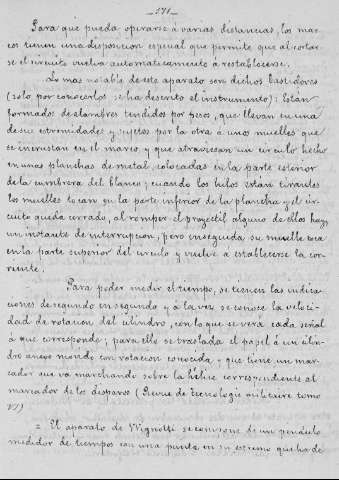 - 571 -
Para que pueda operarse á varias distancias, los mar-
cos tienen una disposicion especial que permite que al cortar-
se el circuito vuelva automaticamente á restablecerse.
Lo mas notable de este aparato son dichos bastidores
(solo por conocerlos se ha descrito el instrumento): Están
formados de alambres tendidos por pesos, que llevan en una
de sus extremidades y sujetos por la otra á unos muelles que
se incrustan en el marco y que atraviesan un circulo hecho
en unas planchas de metal, colocadas en la parte exterior
de la cumbrera del blanco; cuando los hilos estan tirantes
los muelles tocan en la parte inferior de la plancha y el cir-
cuito queda cerrado, al romper el proyectil alguno de ellos hay
un instante de interrupcion, pero enseguida su muelle toca
en la parte superior del circulo y vuelve a establecerse la cor-
riente.
Para poder medir el tiempo, se tienen las indica-
ciones de segundo en segundo y á la vez se conoce la veloci-
dad de rotacion del cilindro, con lo que se verá cada señal
á que corresponde; para ello se traslada el papel á un cilin-
dro anejo movido con rotacion conocida, y que tiene un mar-
cador que va marchando sobre la hélice correspondiente al
marcador de los disparos (Revue de tecnologie militaire tomo
VI)
= El aparato de Vignotti se compone de un péndulo
medidor de tiempos con una punta en su extremo que ha de